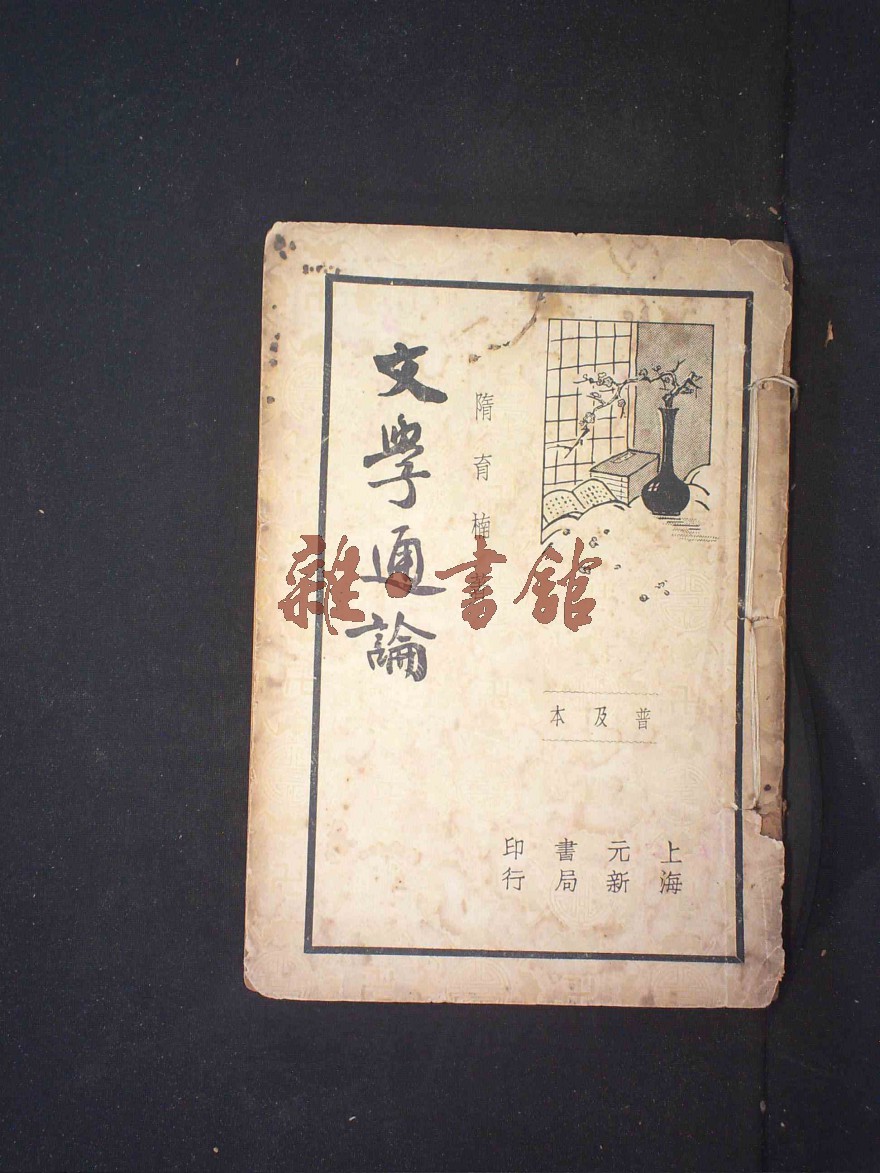 文學通論
隋育楠著
普及本
上海
元新
書局
印行
雜·書館